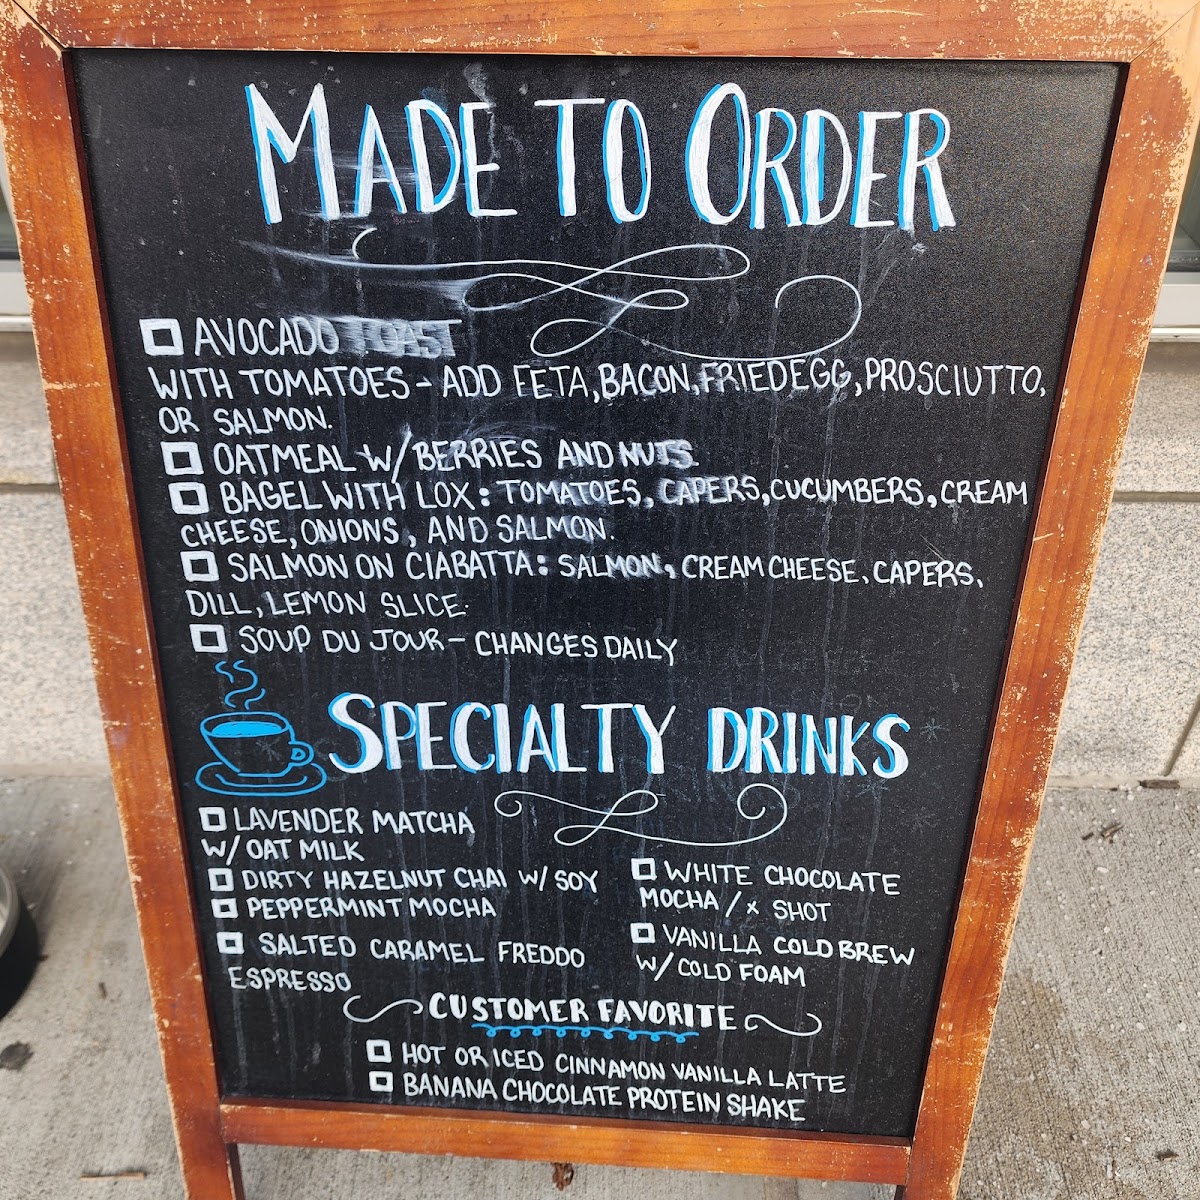 MADE TO ORDER
AVOCADO TOAST
WITH TOMATOES - ADD FETA, BACON, FRIED EGG, PROSCIUTTO,
OR SALMON.
OATMEAL W/ BERRIES AND NUTS.
BAGEL WITH LOX: TOMATOES, CAPERS, CUCUMBERS, CREAM
CHEESE, ONIONS, AND SALMON.
SALMON ON CIABATTA: SALMON, CREAM CHEESE, CAPERS,
DILL, LEMON SLICE.
SOUP DU JOUR - CHANGES DAILY
SPECIALTY DRINKS
LAVENDER MATCHA
W/ OAT MILK
DIRTY HAZELNUT CHAI W/ SOY
PEPPERMINT MOCHA
SALTED CARAMEL FREDDO
ESPRESSO
WHITE CHOCOLATE
MOCHA / X SHOT
VANILLA COLD BREW
W/ COLD FOAM
CUSTOMER FAVORITE
HOT OR ICED CINNAMON VANILLA LATTE
BANANA CHOCOLATE PROTEIN SHAKE